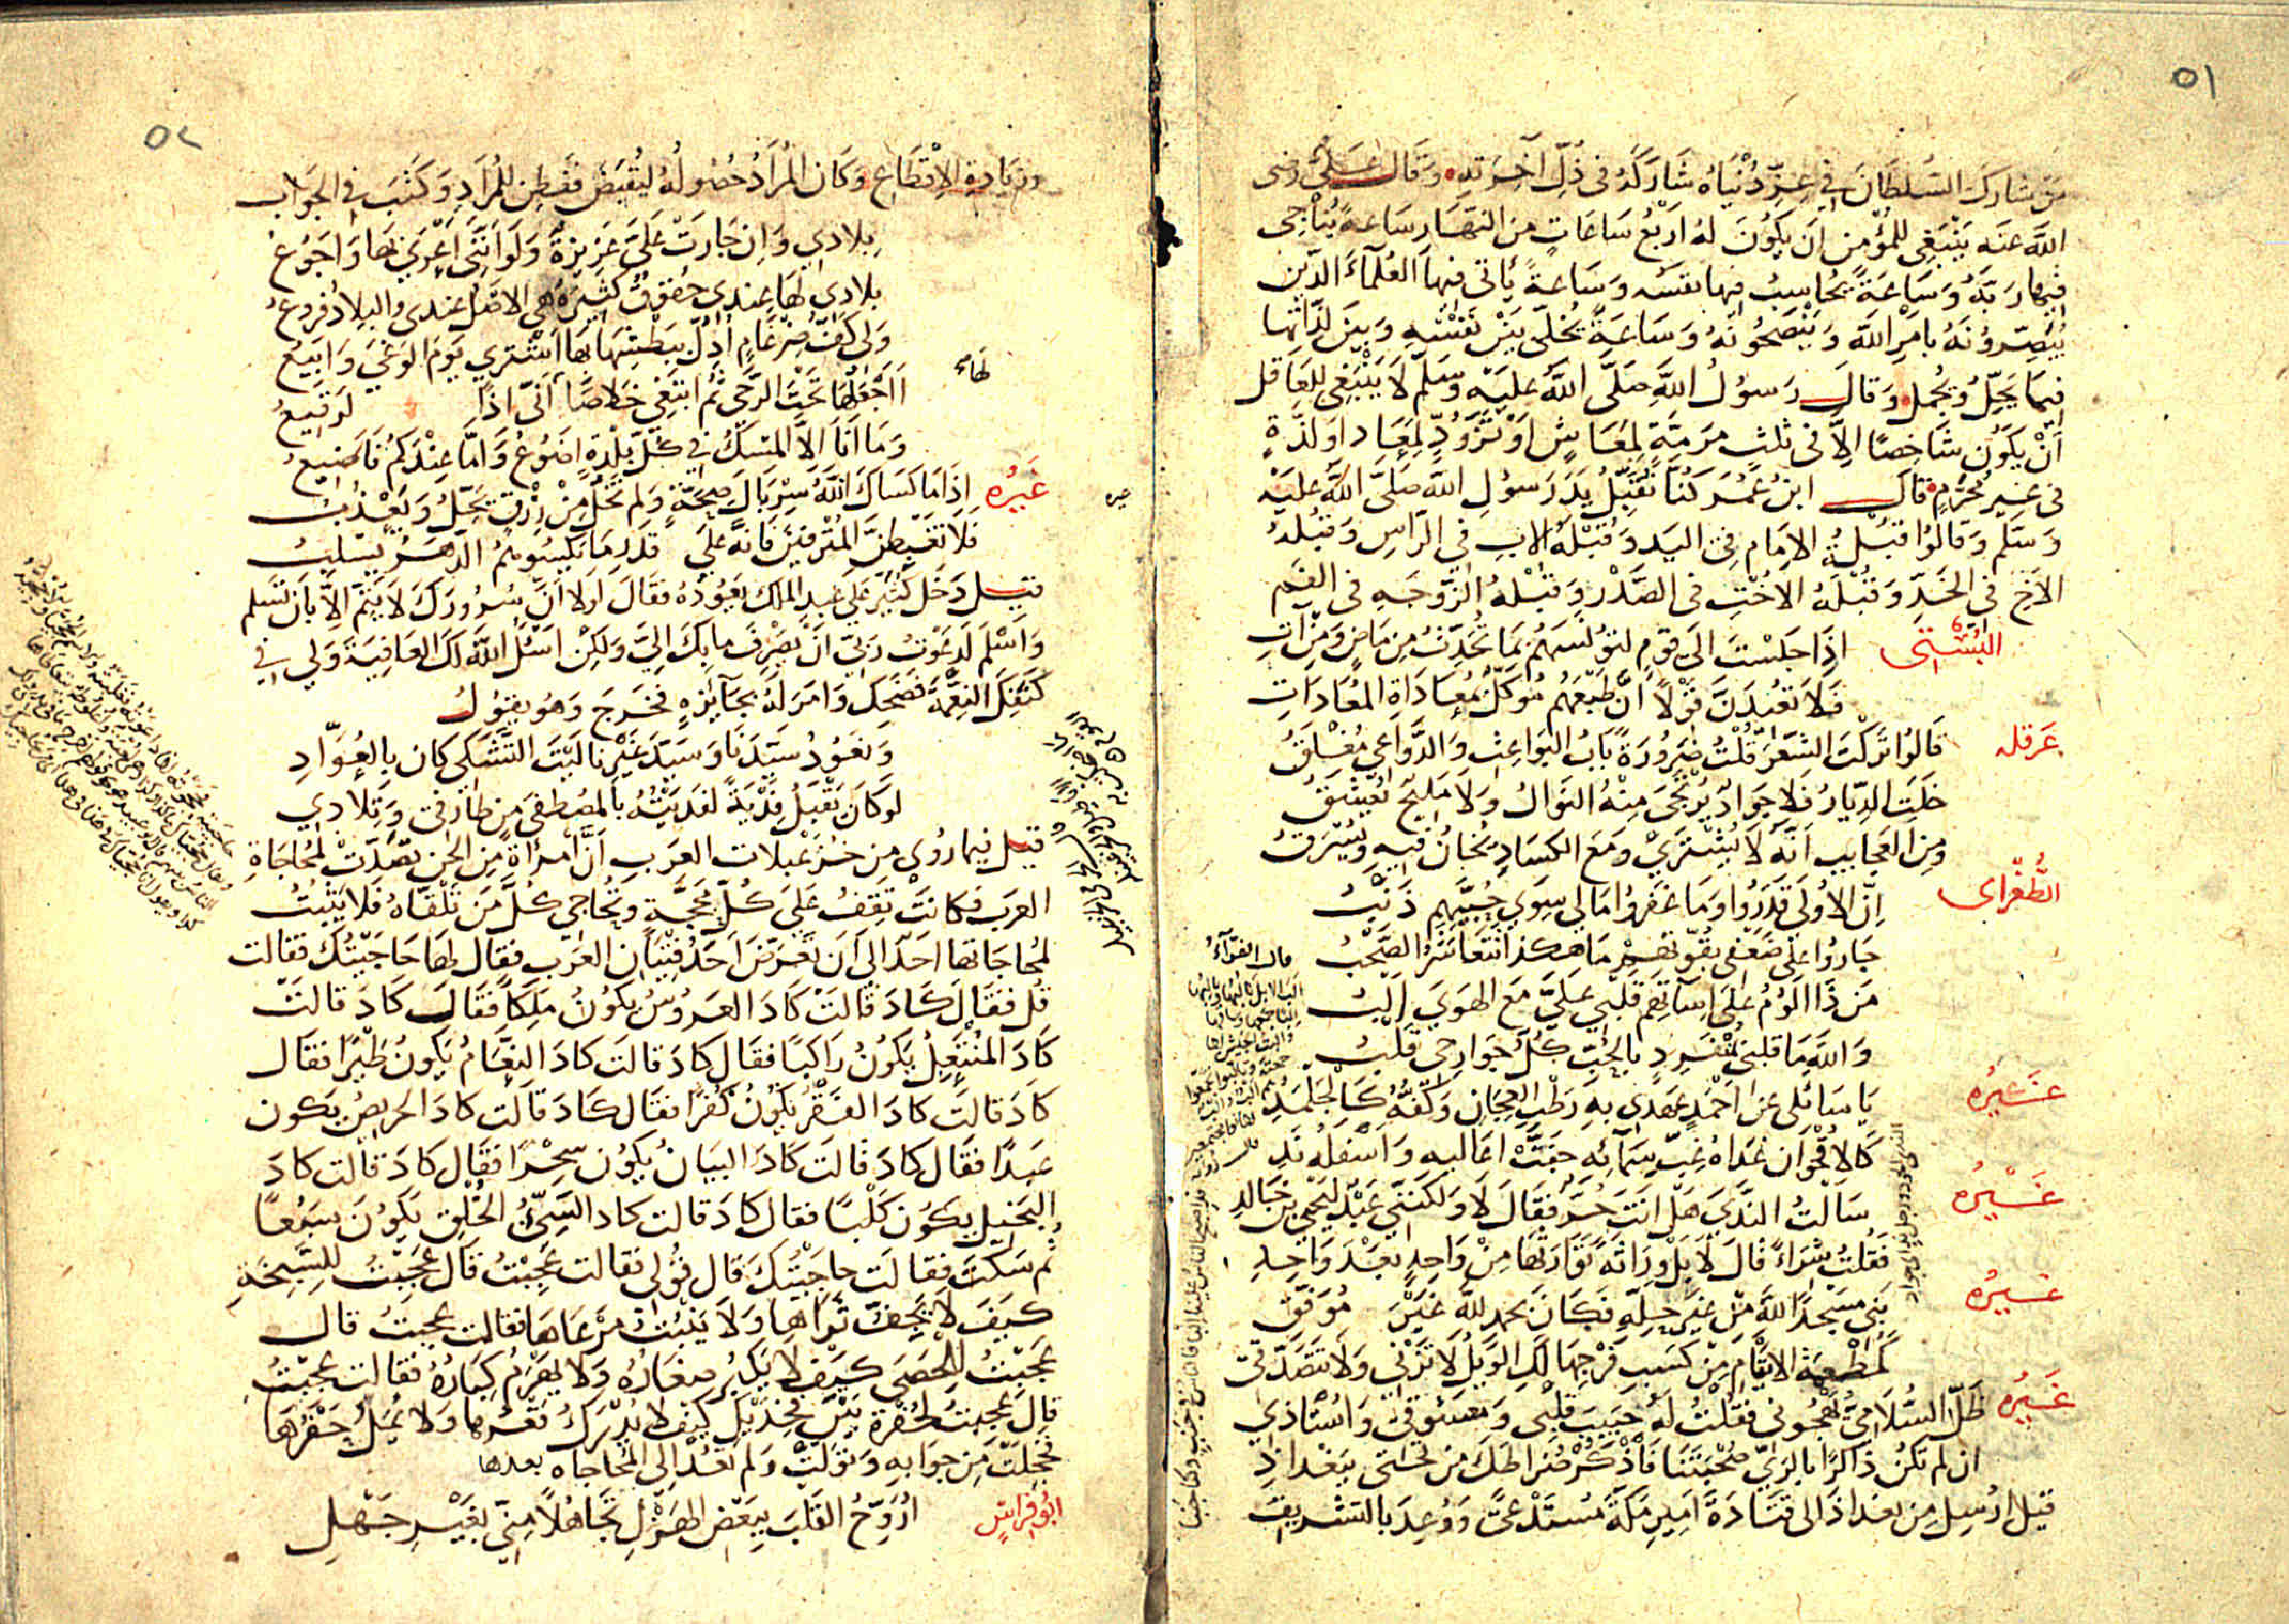 ٥١
من شارك السلطان في عز دنياه شاركه في ذل آخرته وقال علي رضي
الله عنه ينبغي للمؤمن ان يكون له اربع ساعات من النهار ساعة يناجي
فيها ربه وساعة يحاسب فيها نفسه وساعة يأتي فيها العلماء الذين
يبصرونه بامر الله وينصحونه وساعة يخلي بين نفسه وبين لذاتها
فيما يحل ويجمل وقال رسول الله صلى الله عليه وسلم لا ينبغي للعاقل
أن يكون شاخصا الا في ثلث مرمة لمعاش او تزود لمعاد او لذة
في غير محرم قال ابن عمر كنا نقبل يد رسول الله صلى الله عليه
وسلم وقالوا قبلة الامام في اليد وقبلة الاب في الراس وقبلة
الاخ في الخد وقبلة الاخت في الصدر وقبلة الزوجه في الفم
البستي اذا جلست الى قوم لتونسهم بما تحدث من ماض ومن ات
فلا تعيدن قولا ان طبعهم موكل بمعاداة المعادات
عرقله قالوا تركت الشعر قلت ضرورة باب البواعث والدواعي مغلق
خلت الديار فلا جواد يرتجى منه النوال ولا مليح يعشق
ومن العجايب انه لا يشترى ومع الكساد يخان فيه ويسرق
الطغراي ان الاولى قدروا وما غفروا مالي سوى حبيهم ذنب
جاروا على ضعفي بقوتهم ما هكذا تتعاشر الصحب
من ذا الوم على اساتهم قلبي علي مع الهوى الب
والله ما قلبي بمنفرد بالحب كل جوارحي قلب
غيره يا سائلي عن احمد عهدي به رطب العجان وكفه كالجلمد
كالاقحوان غداة غب سمائه جفت اعاليه واسفله ند
غيره سالت الندى هل انت حر فقال لا ولكنني عبد ليحيى بن خالد
فقلت شراء قال لا بل وراثة توارثها من واحد بعد واحد
غيره بنى مسجدا لله من غير حله فكان بحمد لله غير موفق
كمطعمة الايتام من كسب فرجها لك الويل لا تزني ولا تتصدقي
غيره ظل السلامي يهجوني فقلت له حبيب قلبي ومعشوقي واستاذي
ان لم تكن ذاكرا بالري صحبتنا فاذكر ضراطك من تحتي ببغداذ
قيل ارسل من بغداذ الى قتادة امير مكة مستدعى ووعد بالتشريف
قال الفراء
٥٢
وزيادة الاقطاع وكان المراد حصوله ليقبض ففطن للمراد وكتب في الجواب
بلادي وان جارت علي عزيزة ولو انني اعرى بها واجوع
بلادي لها عندي حقوق كثيرة هي الاصل عندي والبلاد فروع
ولي كف ضرغام اذل ببطشها بها اشتري يوم الوغى وابيع
أاجعلها تحت الرحى ثم ابتغي خلاصا انى اذا لرقيع
وما انا الا المسك في كل بلدة اضوع واما عندكم فاضيع
غيره اذا ما كساك الله سربال صحة ولم تخل من رزق يحل ويعذب
فلا تغبطن المترفين فانه على قدر ما يكسوهم الدهر يسلب
قيل دخل كثير على عبد الملك يعوده فقال لولا ان سرورك لا يتم الا بان تسلم
واسلم لدعوت ربي ان يصرف ما بك الي ولكن اسئل الله لك العافية ولي في
كنفك النعمة فضحك وامر له بجايزه فخرج وهو يقول
ونعود سيدنا وسيد غيرنا ليت التشكي كان بالعواد
لو كان يقبل فدية لفديته بالمصطفى من طارفي وتلادي
قيل فيما روى من خزعبلات العرب ان امرأة من الجن تصدت لمحاجاة
العرب فكانت تقف على كل محجة وتحاجي كل من تلقاه فلا يثبت
لمحاجاتها احد الى ان تعرض احد فتيان العرب فقال لها حاجيتك فقالت
قل فقال كاد قالت كاد العروس يكون ملكا فقال كاد قالت
كاد المنتعل يكون راكبا فقال كاد قالت كاد النعام يكون طيرا فقال
كاد قالت كاد الفقر يكون كفرا فقال كاد قالت كاد الحريص يكون
عبدا فقال كاد قالت كاد البيان يكون سحرا فقال كاد قالت كاد
البخيل يكون كلبا فقال كاد قالت كاد السيئ الخلق يكون سبعا
ثم سكت فقالت حاجيتك قال قولي فقالت عجبت قال عجبت للسبخة
كيف لا يجف ثراها ولا ينبت مرعاها فقالت عجبت قال
عجبت للحصى كيف لا يكبر صغاره ولا يهرم كباره فقالت عجبت
قال عجبت لحفرة بين فخذيك كيف لا يدرك قعرها ولا يمل حفرها
فخجلت من جوابه وتولت ولم تعد الى المحاجاه بعدها
ابو فراس اروح القلب ببعض الهزل تجاهلا مني بغير جهل